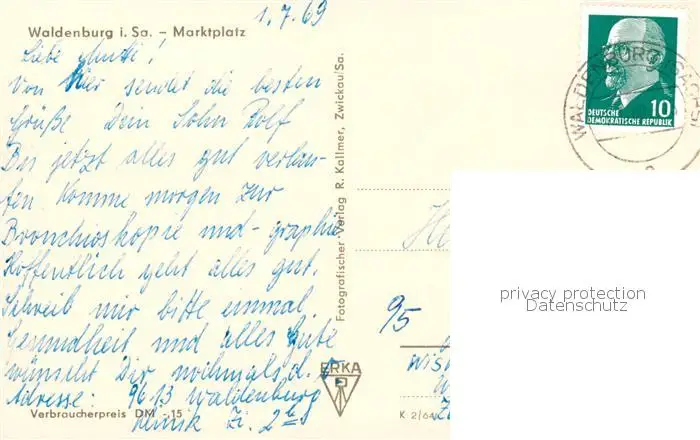 1.7.69
Waldenburg i. Sa. – Marktplatz
Liebe Mutti!
Von hier sendet die besten
Grüße Dein Sohn Rolf
Bis jetzt alles gut verlau-
fen. Komme morgen zur
Bronchioskopie und -graphie
Hoffentlich geht alles gut.
Schreib mir bitte einmal.
Gesundheit und alles Gute
wünscht Dir nochmals d.
Adresse: 9613 Waldenburg
Klinik Zi. 2
Verbraucherpreis DM -,15
Fotografischer Verlag R. Kallmer, Zwickau/Sa.
ERKA
K 2/64
WALDENBURG (SACHS)
10
DEUTSCHE
DEMOKRATISCHE REPUBLIK
95
privacy protection
Datenschutz